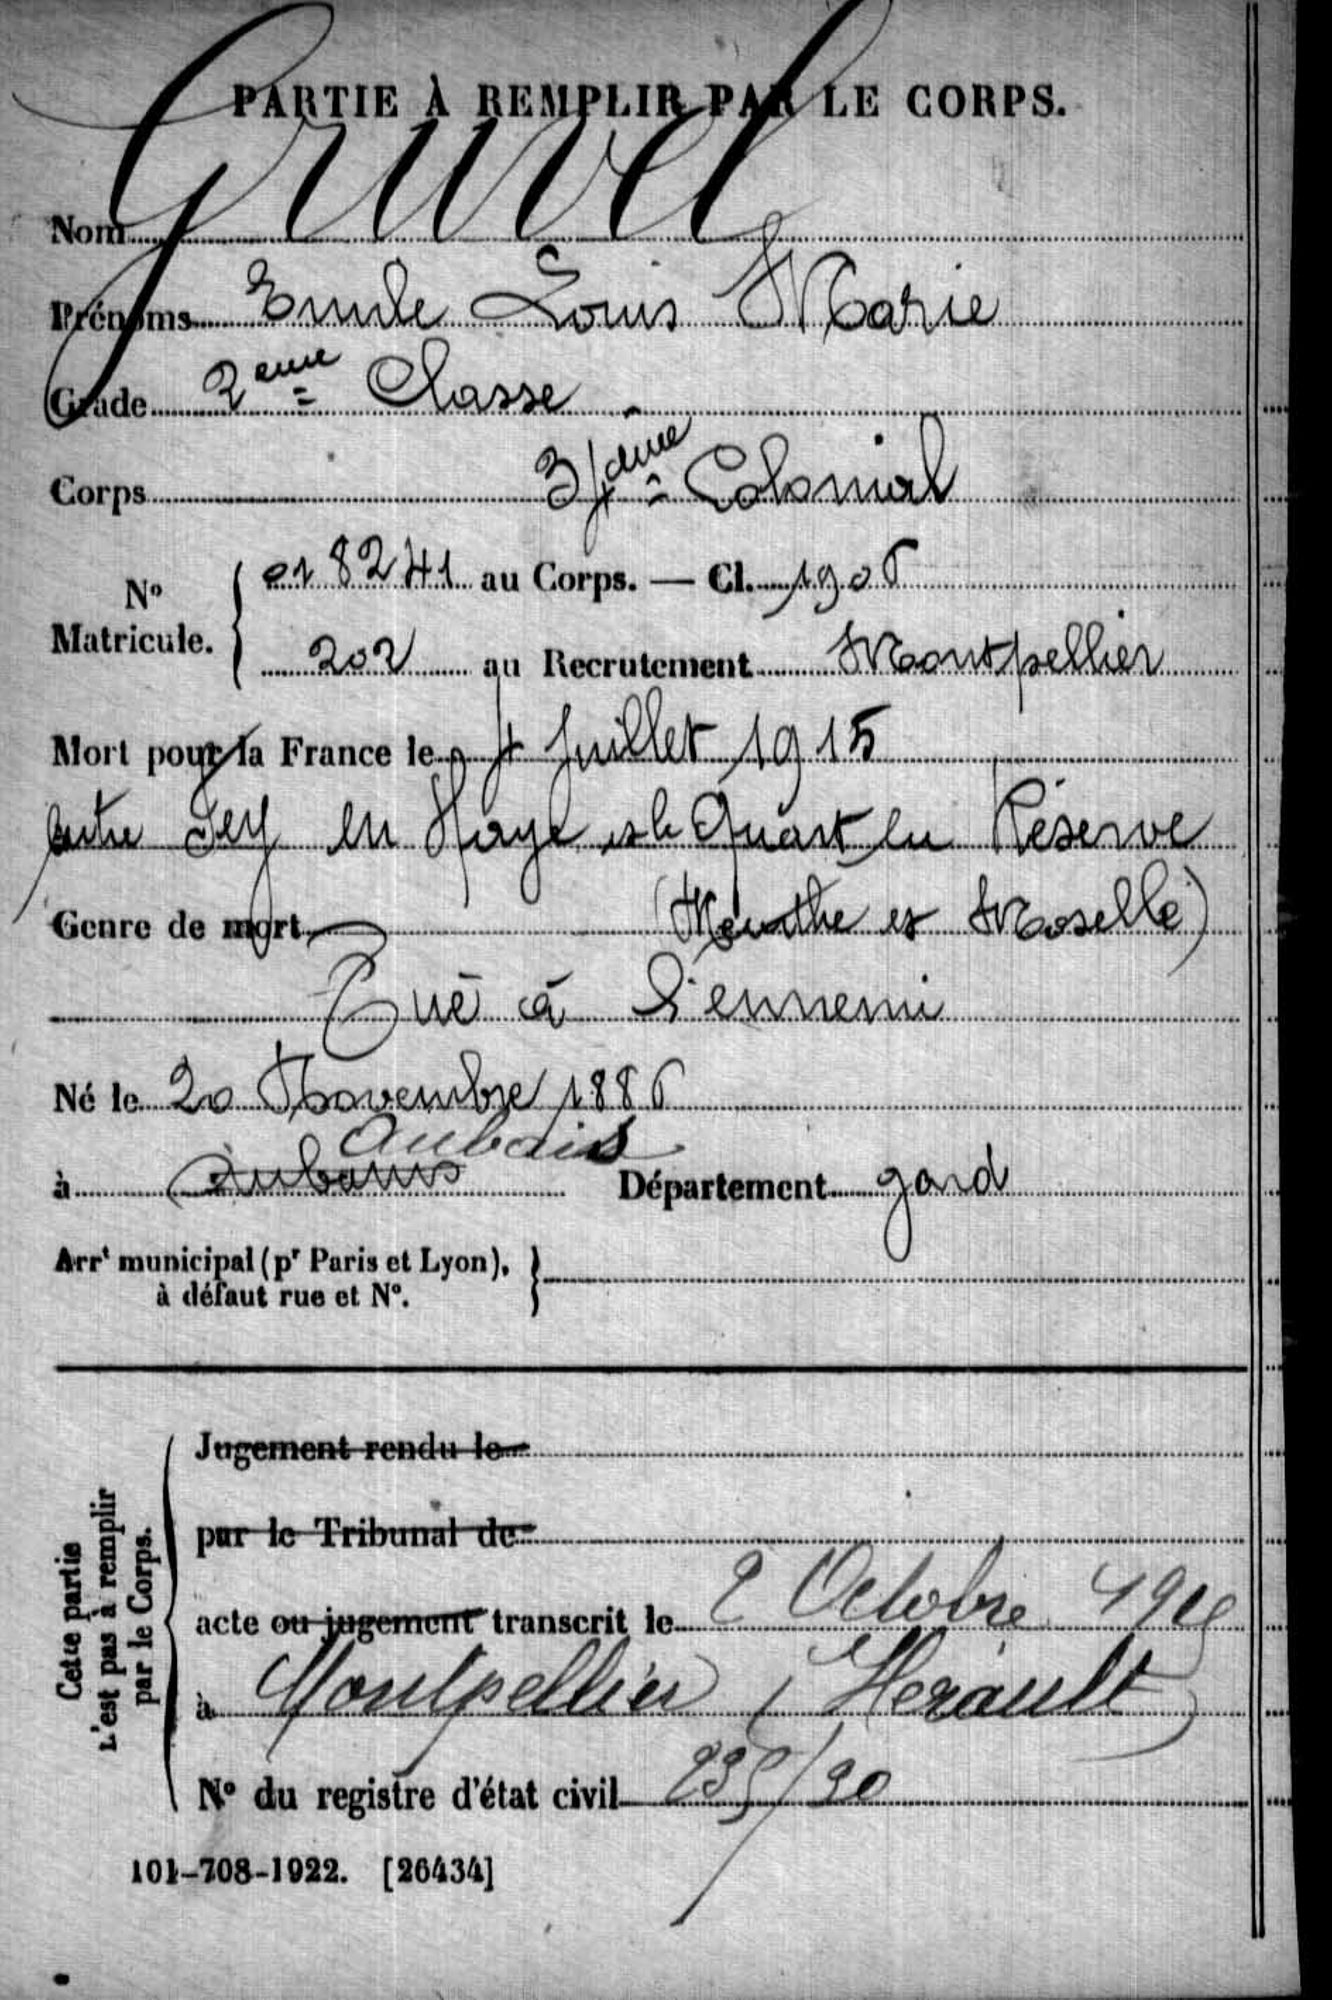 PARTIE À REMPLIR PAR LE CORPS.
Nom Gruvel
Prénoms Emile Louis Marie
Grade 2eme Classe
Corps 34ème Colonial
N° Matricule. 018241 au Corps. — Cl. 1906
202 au Recrutement Montpellier
Mort pour la France le 4 Juillet 1915
entre Fey en Haye et le Quart en Réserve
Genre de mort (Meurthe et Moselle)
Tué à l'ennemi
Né le 20 Novembre 1886
Aubais
à Département Gard
Arrt municipal (pr Paris et Lyon),
à défaut rue et N°.
Cette partie
L'est pas à remplir
par le Corps.
Jugement rendu le
par le Tribunal de
acte ou jugement transcrit le 2 Octobre
à Montpellier (Hérault)
N° du registre d'état civil
101-708-1922. [26434]